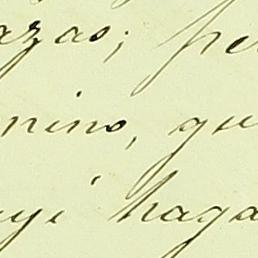 azas; pe
nino, qu
uyi haga